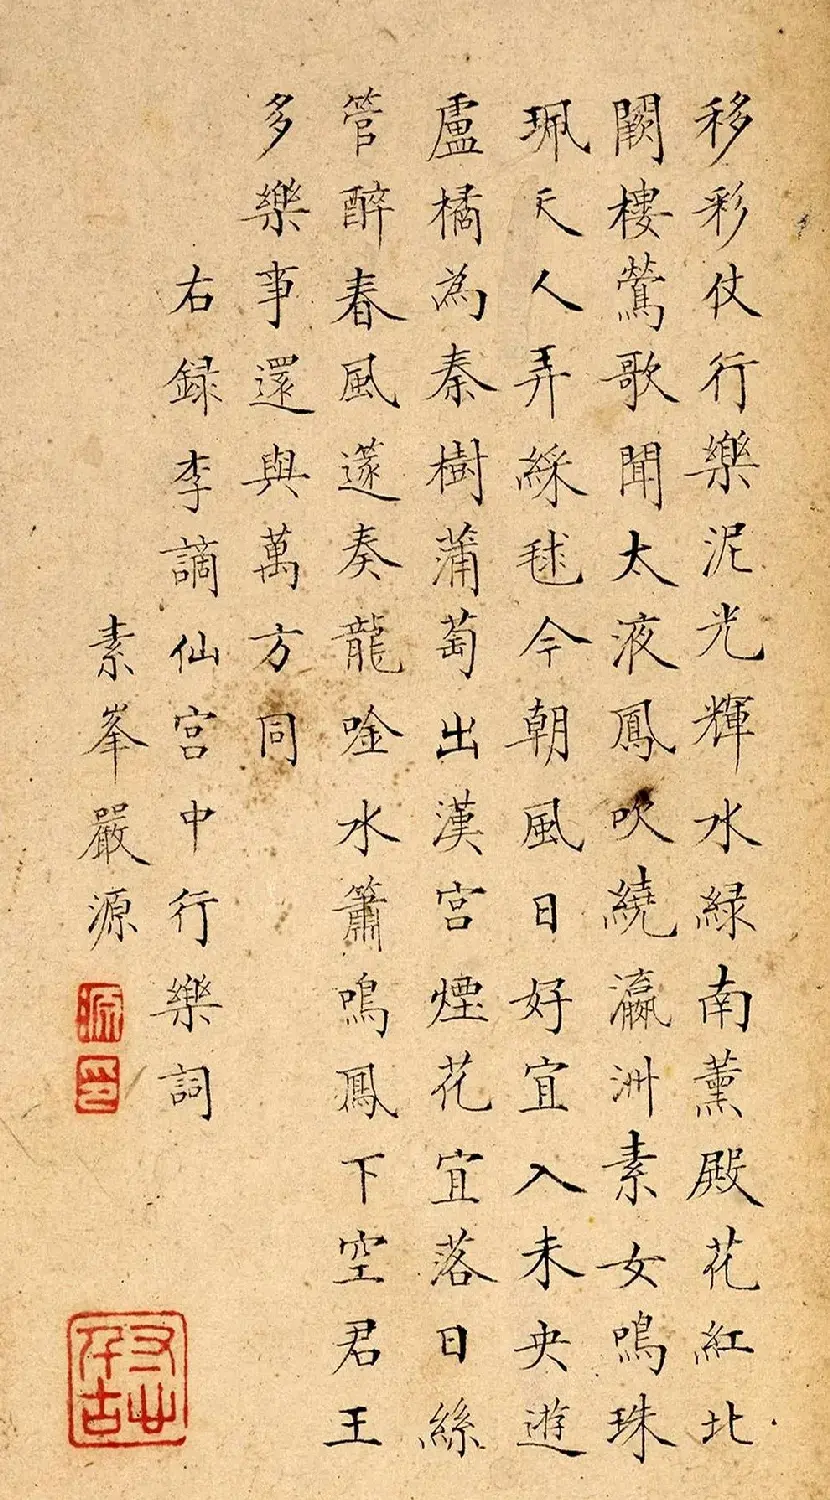 移彩仗行樂泥光輝水緑南薰殿花紅北
闕樓鶯歌聞太液鳳吹繞瀛洲素女鳴珠
珮天人弄綵毬今朝風日好宜入未央遊
盧橘為秦樹蒲萄出漢宮煙花宜落日絲
管醉春風邃奏龍唫水簫鳴鳳下空君王
多樂事還與萬方同
右録李謫仙宮中行樂詞
素峯嚴源
源印